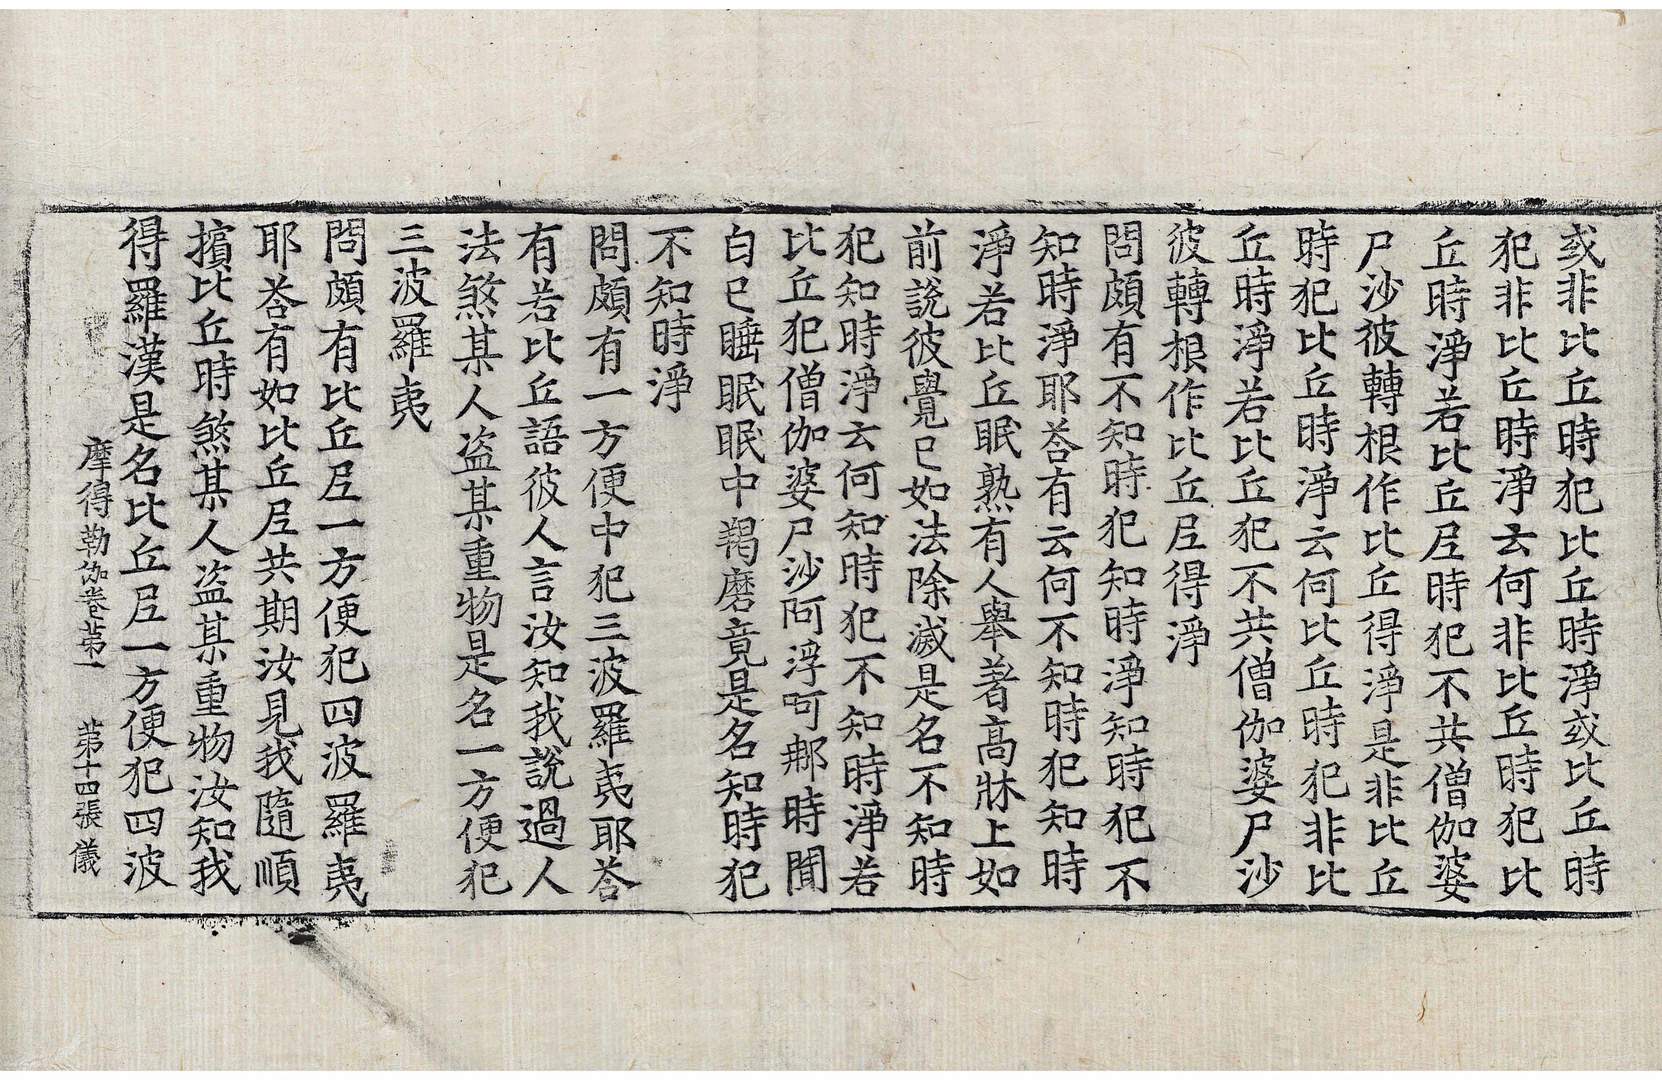 或非比丘時犯比丘時淨或比丘時
犯非比丘時淨云何非比丘時犯比
丘時淨若比丘尼時犯不共僧伽婆
尸沙彼轉根作比丘得淨是非比丘
時犯比丘時淨云何比丘時犯非比
丘時淨若比丘犯不共僧伽婆尸沙
彼轉根作比丘尼得淨
問頗有不知時犯知時淨知時犯不
知時淨耶荅有云何不知時犯知時
淨若比丘眠熟有人舉著高牀上如
前說彼覺已如法除滅是名不知時
犯知時淨云何知時犯不知時淨若
比丘犯僧伽婆尸沙阿浮呵那時聞
白已睡眠眠中羯磨竟是名知時犯
不知時淨
問頗有一方便中犯三波羅夷耶荅
有若比丘語彼人言汝知我說過人
法煞某人盜某重物是名一方便犯
三波羅夷
問頗有比丘尼一方便犯四波羅夷
耶荅有如比丘尼共期汝見我隨順
擯比丘時煞某人盜某重物汝知我
得羅漢是名比丘尼一方便犯四波
摩得勒伽卷第一 第十四張 儀